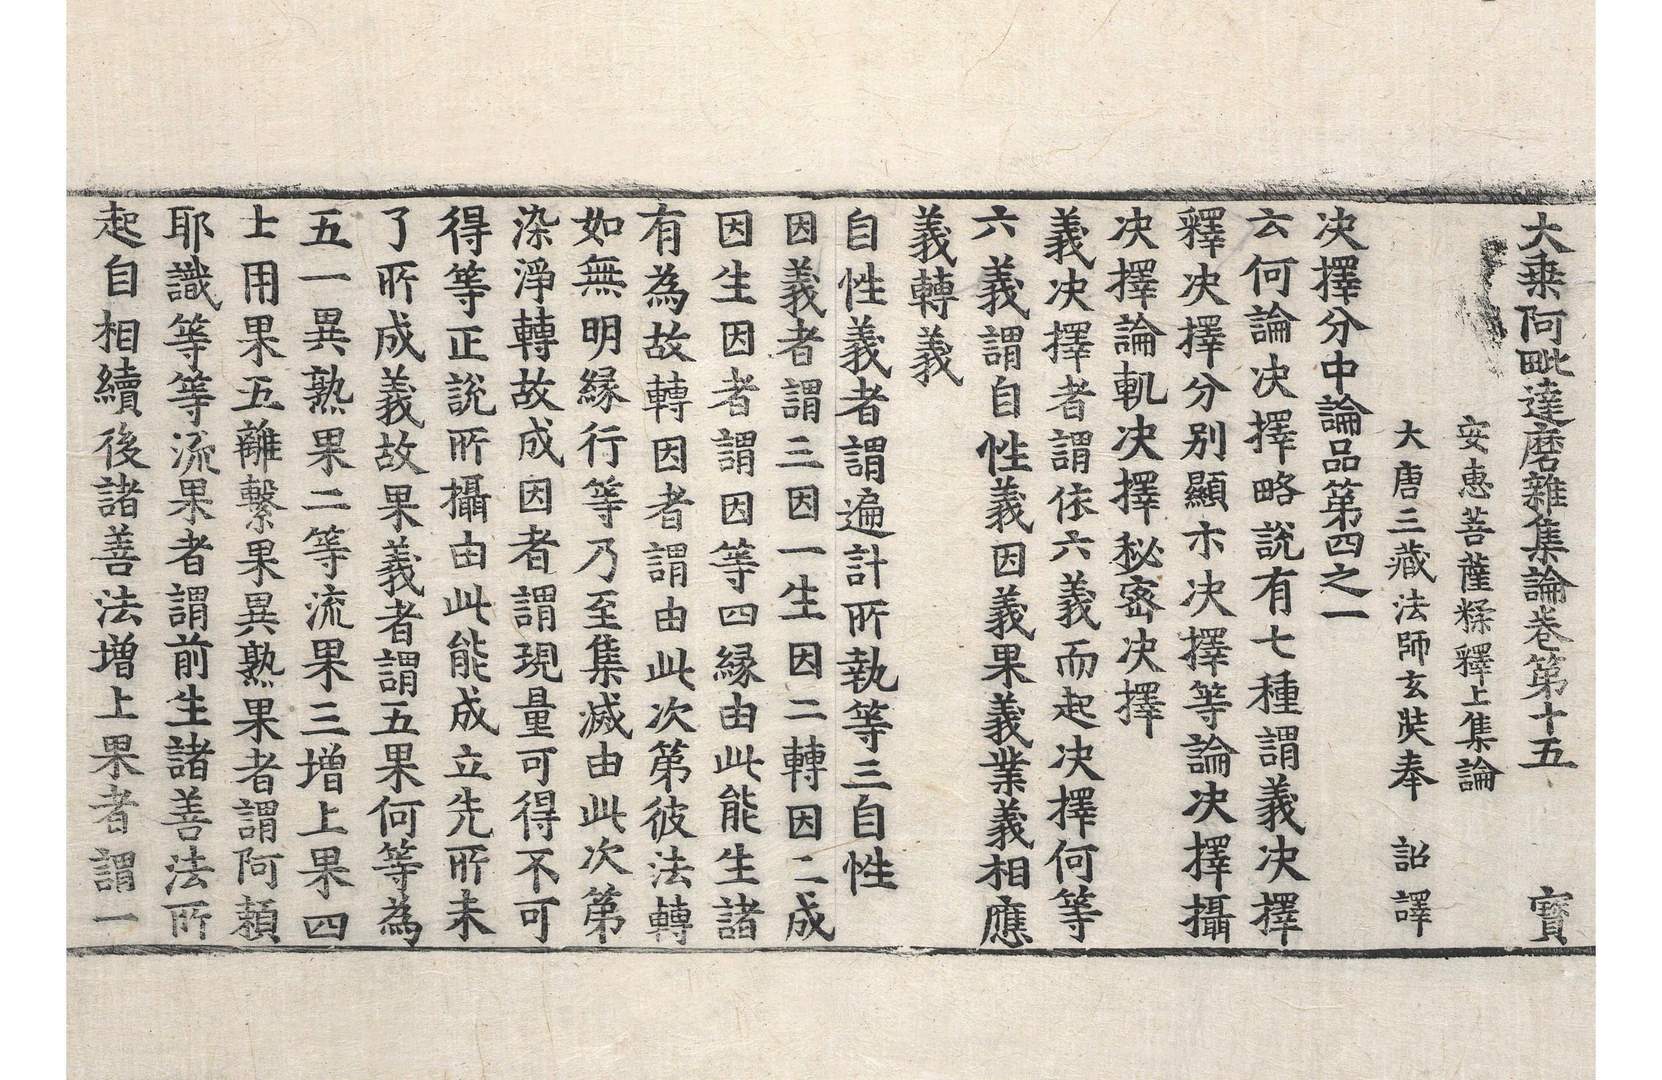 大乘阿毗達磨雜集論卷第十五 寶
安惠菩薩糅釋上集論
大唐三藏法師玄奘奉 詔譯
决擇分中論品第四之一
云何論决擇略說有七種謂義决擇
釋决擇分別顯示决擇等論决擇攝
决擇論軌决擇秘密决擇
義决擇者謂依六義而起决擇何等
六義謂自性義因義果義業義相應
義轉義
自性義者謂遍計所執等三自性
因義者謂三因一生因二轉因二成
因生因者謂因等四緣由此能生諸
有為故轉因者謂由此次第彼法轉
如無明緣行等乃至集滅由此次第
染淨轉故成因者謂現量可得不可
得等正說所攝由此能成立先所未
了所成義故果義者謂五果何等為
五一異熟果二等流果三增上果四
士用果五離繫果異熟果者謂阿賴
耶識等等流果者謂前生諸善法所
起自相續後諸善法增上果者謂一